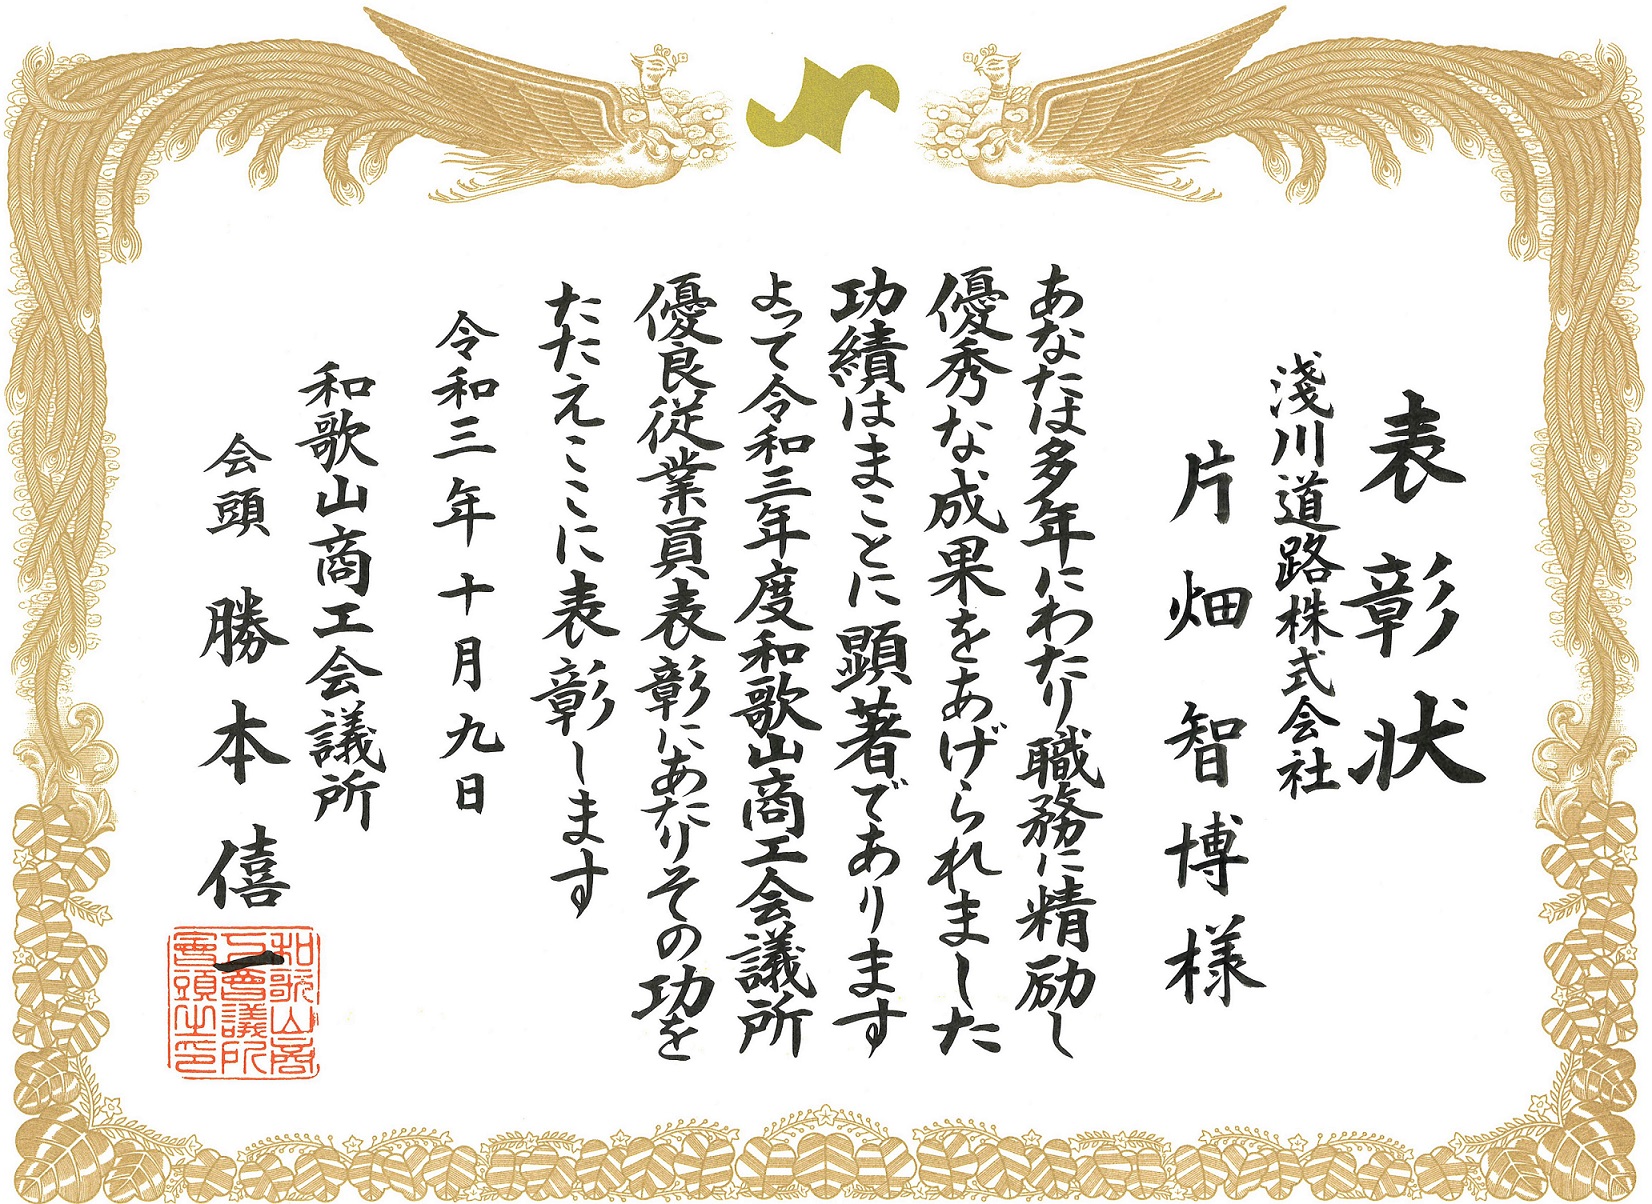 表彰状
淺川道路株式会社
片畑智博様
あなたは多年にわたり職務に精励し
優秀な成果をあげられました
功績はまことに顕著であります
よって令和三年度和歌山商工会議所
優良従業員表彰にあたりその功を
たたえここに表彰します
令和三年十月九日
和歌山商工会議所
会頭 勝本僖一
和歌山商工會議所會頭之印